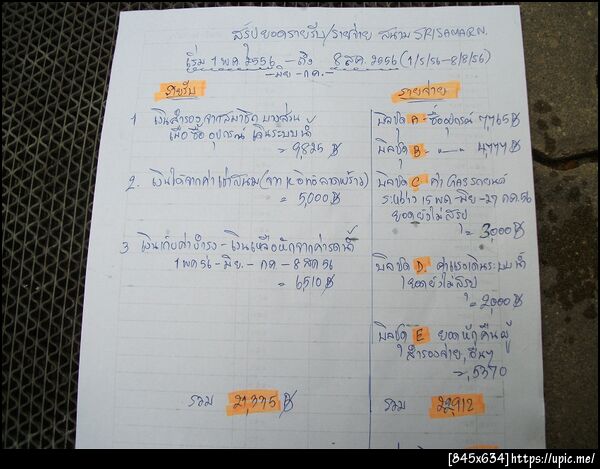 สรุปยอดรายรับ/รายจ่าย สนาม SRISAMARN.
เริ่ม 1 พค 2556 - ถึง 8 สค. 2556 (1/5/56-8/8/56)
-มิย - กค.-
รายรับ
1 เงินสำรองจากสมาชิก บางส่วน
เพื่อซื้ออุปกรณ์ เดินระบบน้ำ
= 9,825 ฿
2. เงินได้จากค่าเช่าสนาม (จาก ลาดพร้าว)
= 5,000 ฿
3 เงินเก็บค่าบำรุง - เงินเหลือหักจากค่ารดน้ำ
1 พค 56 - มิย. - กค - 8 สค 56
= 6510 ฿
รวม 21,335 ฿
รายจ่าย
บิลชุด A - ซื้ออุปกรณ์ 7,765 ฿
บิลชุด B - 4,777 ฿
บิลชุด C - ค่า
ระหว่าง 15 พค - มิย - 27 กค. 56
ยอดยังไม่สรุป
= 3,000 ฿
บิลชุด D. ค่าแรงเดินระบบน้ำ
ยอดยังไม่สรุป
= 2,000 ฿
บิลชุด E ยอดหักคืนผู้
สำรองจ่าย, อื่นๆ
= 5370
รวม 22,912
[845x634]https://upic.me/